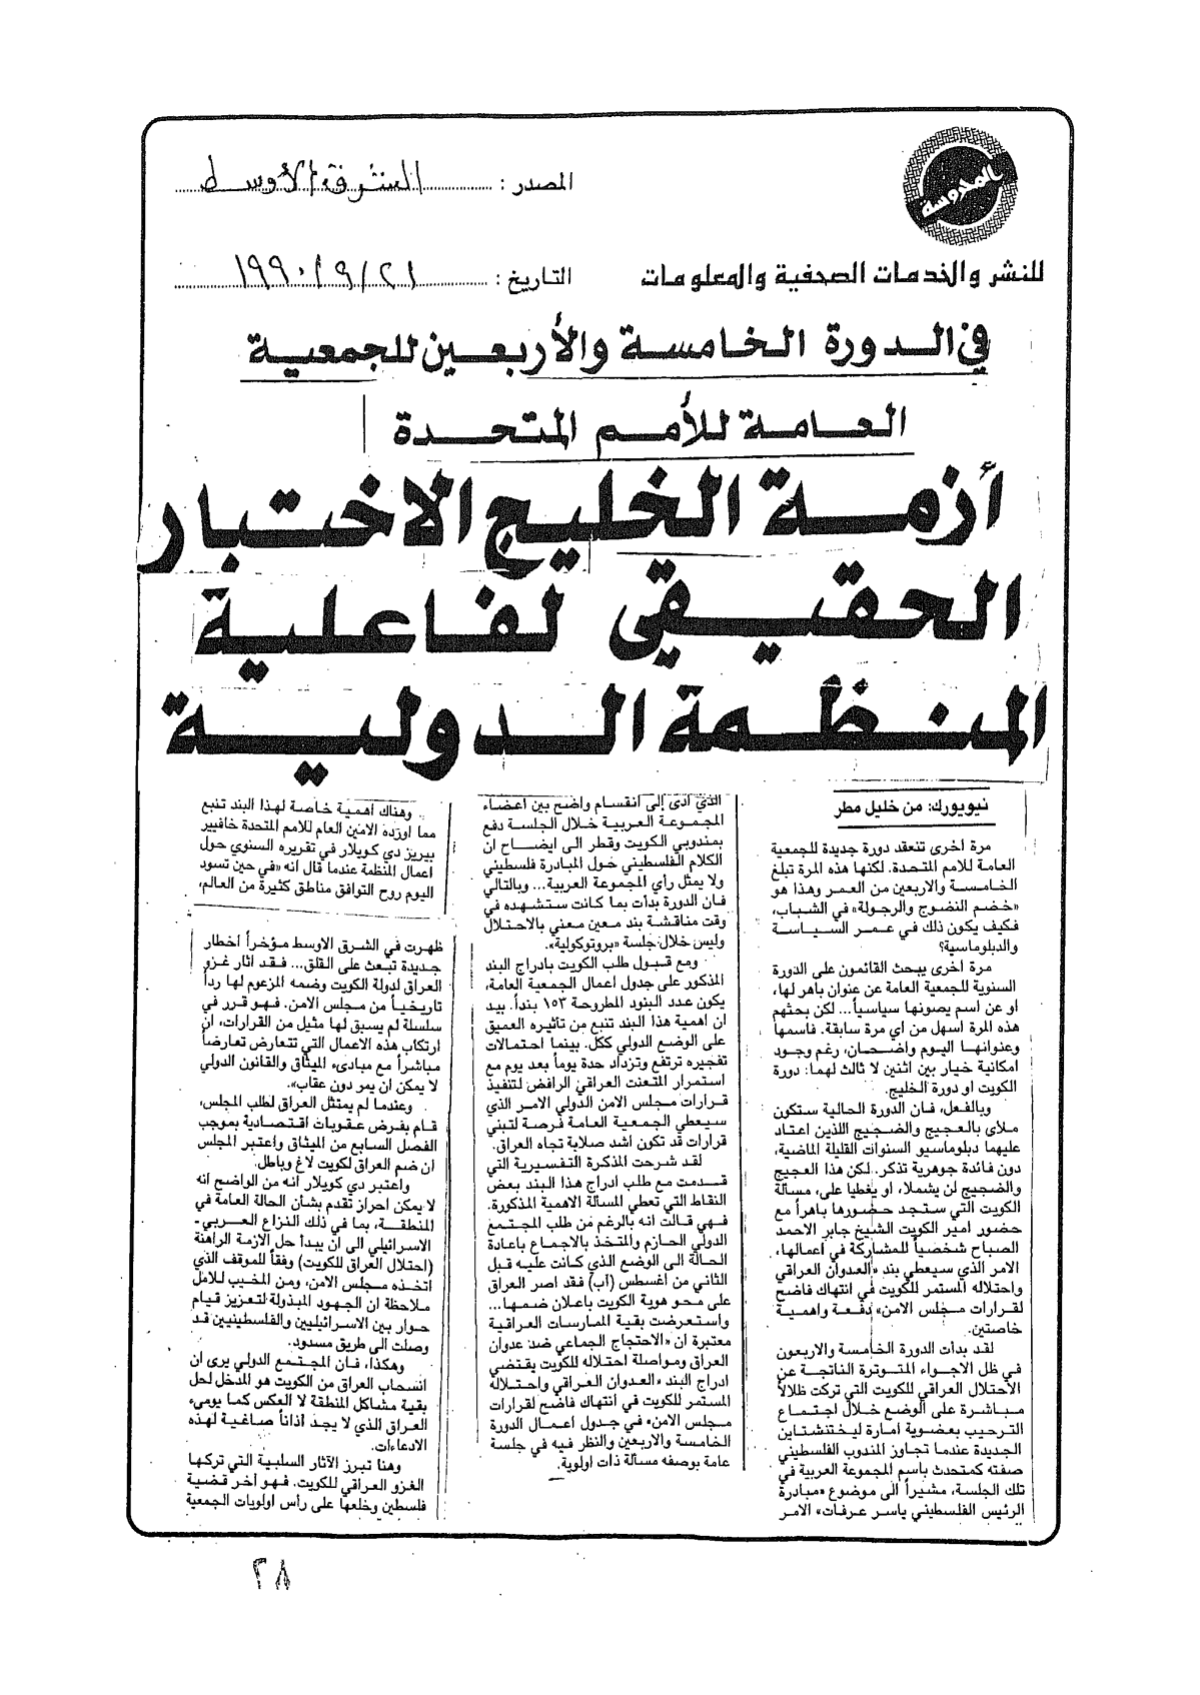 المحروسة
المصدر : الشرق الأوسط
للنشر والخدمات الصحفية والمعلومات
التاريخ : ٢١/٩/١٩٩٠
في الدورة الخامسة والأربعين للجمعية
العامة للأمم المتحدة
أزمة الخليج الاختبار
الحقيقي لفاعلية
المنظمة الدولية
نيويورك: من خليل مطر
مرة اخرى تنعقد دورة جديدة للجمعية
العامة للامم المتحدة. لكنها هذه المرة تبلغ
الخامسة والاربعين من العمر وهذا هو
«خضم النضوج والرجولة» في الشباب،
فكيف يكون ذلك في عمر السياسة
والدبلوماسية؟
مرة اخرى يبحث القائمون على الدورة
السنوية للجمعية العامة عن عنوان باهر لها،
او عن اسم يصونها سياسياً... لكن بحثهم
هذه المرة اسهل من اي مرة سابقة. فاسمها
وعنوانها اليوم واضحان، رغم وجود
امكانية خيار بين اثنين لا ثالث لهما: دورة
الكويت او دورة الخليج.
وبالفعل، فان الدورة الحالية ستكون
ملأى بالعجيج والضجيج اللذين اعتاد
عليهما دبلوماسيو السنوات القليلة الماضية،
دون فائدة جوهرية تذكر. لكن هذا العجيج
والضجيج لن يشملا، او يغطيا على، مسألة
الكويت التي ستجد حضورها باهراً مع
حضور امير الكويت الشيخ جابر الاحمد
الصباح شخصياً للمشاركة في اعمالها،
الامر الذي سيعطي بند «العدوان العراقي
واحتلاله المستمر للكويت في انتهاك فاضح
لقرارات مجلس الامن» دفعة واهمية
خاصتين.
لقد بدأت الدورة الخامسة والاربعون
في ظل الاجواء المتوترة الناتجة عن
الاحتلال العراقي للكويت التي تركت ظلالاً
مباشرة على الوضع خلال اجتماع
الترحيب بعضوية امارة ليختنشتاين
الجديدة عندما تجاوز المندوب الفلسطيني
صفته كمتحدث باسم المجموعة العربية في
تلك الجلسة، مشيراً الى موضوع «مبادرة
الرئيس الفلسطيني ياسر عرفات» الامر
الذي ادى إلى انقسام واضح بين اعضاء
المجموعة العربية خلال الجلسة دفع
بمندوبي الكويت وقطر الى ايضاح ان
الكلام الفلسطيني حول المبادرة فلسطيني
ولا يمثل رأي المجموعة العربية... وبالتالي
فان الدورة بدأت بما كانت ستشهده في
وقت مناقشة بند معين معني بالاحتلال
وليس خلال جلسة «بروتوكولية».
ومع قبول طلب الكويت بادراج البند
المذكور على جدول اعمال الجمعية العامة،
يكون عدد البنود المطروحة ١٥٣ بنداً. بيد
ان اهمية هذا البند تنبع من تأثيره العميق
على الوضع الدولي ككل. بينما احتمالات
تفجيره ترتفع وتزداد حدة يوماً بعد يوم مع
استمرار المتعنت العراقي الرافض لتنفيذ
قرارات مجلس الامن الدولي الامر الذي
سيعطي الجمعية العامة فرصة لتبني
قرارات قد تكون اشد صلابة تجاه العراق.
لقد شرحت المذكرة التفسيرية التي
قدمت مع طلب ادراج هذا البند بعض
النقاط التي تعطي المسألة الاهمية المذكورة.
فهي قالت انه بالرغم من طلب المجتمع
الدولي الحازم والمتخذ بالاجماع باعادة
الحالة الى الوضع الذي كانت عليه قبل
الثاني من اغسطس (آب) فقد اصر العراق
على محو هوية الكويت باعلان ضمها...
واستعرضت بقية الممارسات العراقية
معتبرة ان «الاحتجاج الجماعي ضد عدوان
العراق ومواصلة احتلاله للكويت يقتضي
ادراج البند «العدوان العراقي واحتلاله
المستمر للكويت في انتهاك فاضح لقرارات
مجلس الامن» في جدول اعمال الدورة
الخامسة والاربعين والنظر فيه في جلسة
عامة بوصفه مسألة ذات اولوية.
وهناك اهمية خاصة لهذا البند تنبع
مما اورده الامين العام للامم المتحدة خافيير
بيريز دي كويلار في تقريره السنوي حول
اعمال المنظمة عندما قال انه «في حين تسود
اليوم روح التوافق مناطق كثيرة من العالم،
ظهرت في الشرق الاوسط مؤخراً اخطار
جديدة تبعث على القلق... فقد اثار غزو
العراق لدولة الكويت وضمه المزعوم لها رداً
تاريخياً من مجلس الامن. فهو قرر في
سلسلة لم يسبق لها مثيل من القرارات، ان
ارتكاب هذه الاعمال التي تتعارض تعارضاً
مباشراً مع مبادىء الميثاق والقانون الدولي
لا يمكن ان يمر دون عقاب».
وعندما لم يمتثل العراق لطلب المجلس،
قام بفرض عقوبات اقتصادية بموجب
الفصل السابع من الميثاق واعتبر المجلس
ان ضم العراق لكويت لاغ وباطل.
واعتبر دي كويلار انه من الواضح انه
لا يمكن احراز تقدم بشأن الحالة العامة في
المنطقة، بما في ذلك النزاع العربي-
الاسرائيلي الى ان يبدأ حل الازمة الراهنة
(احتلال العراق للكويت) وفقاً للموقف الذي
اتخذه مجلس الامن، ومن المخيب للأمل
ملاحظة ان الجهود المبذولة لتعزيز قيام
حوار بين الاسرائيليين والفلسطينيين قد
وصلت الى طريق مسدود.
وهكذا، فان المجتمع الدولي يرى ان
انسحاب العراق من الكويت هو المدخل لحل
بقية مشاكل المنطقة لا العكس كما يومىء
العراق الذي لا يجد اذاناً صاغية لهذه
الادعاءات.
وهنا تبرز الآثار السلبية التي تركها
الغزو العراقي للكويت. فهو آخر قضية
فلسطين وخلعها على رأس اولويات الجمعية
٢٨